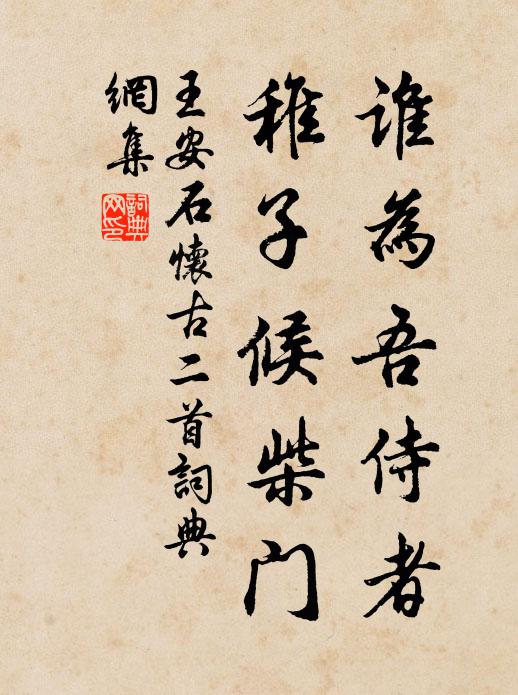 谁為吾侍者
稚子候柴门
王安石懷古二首詞典
網集
詞典
网印